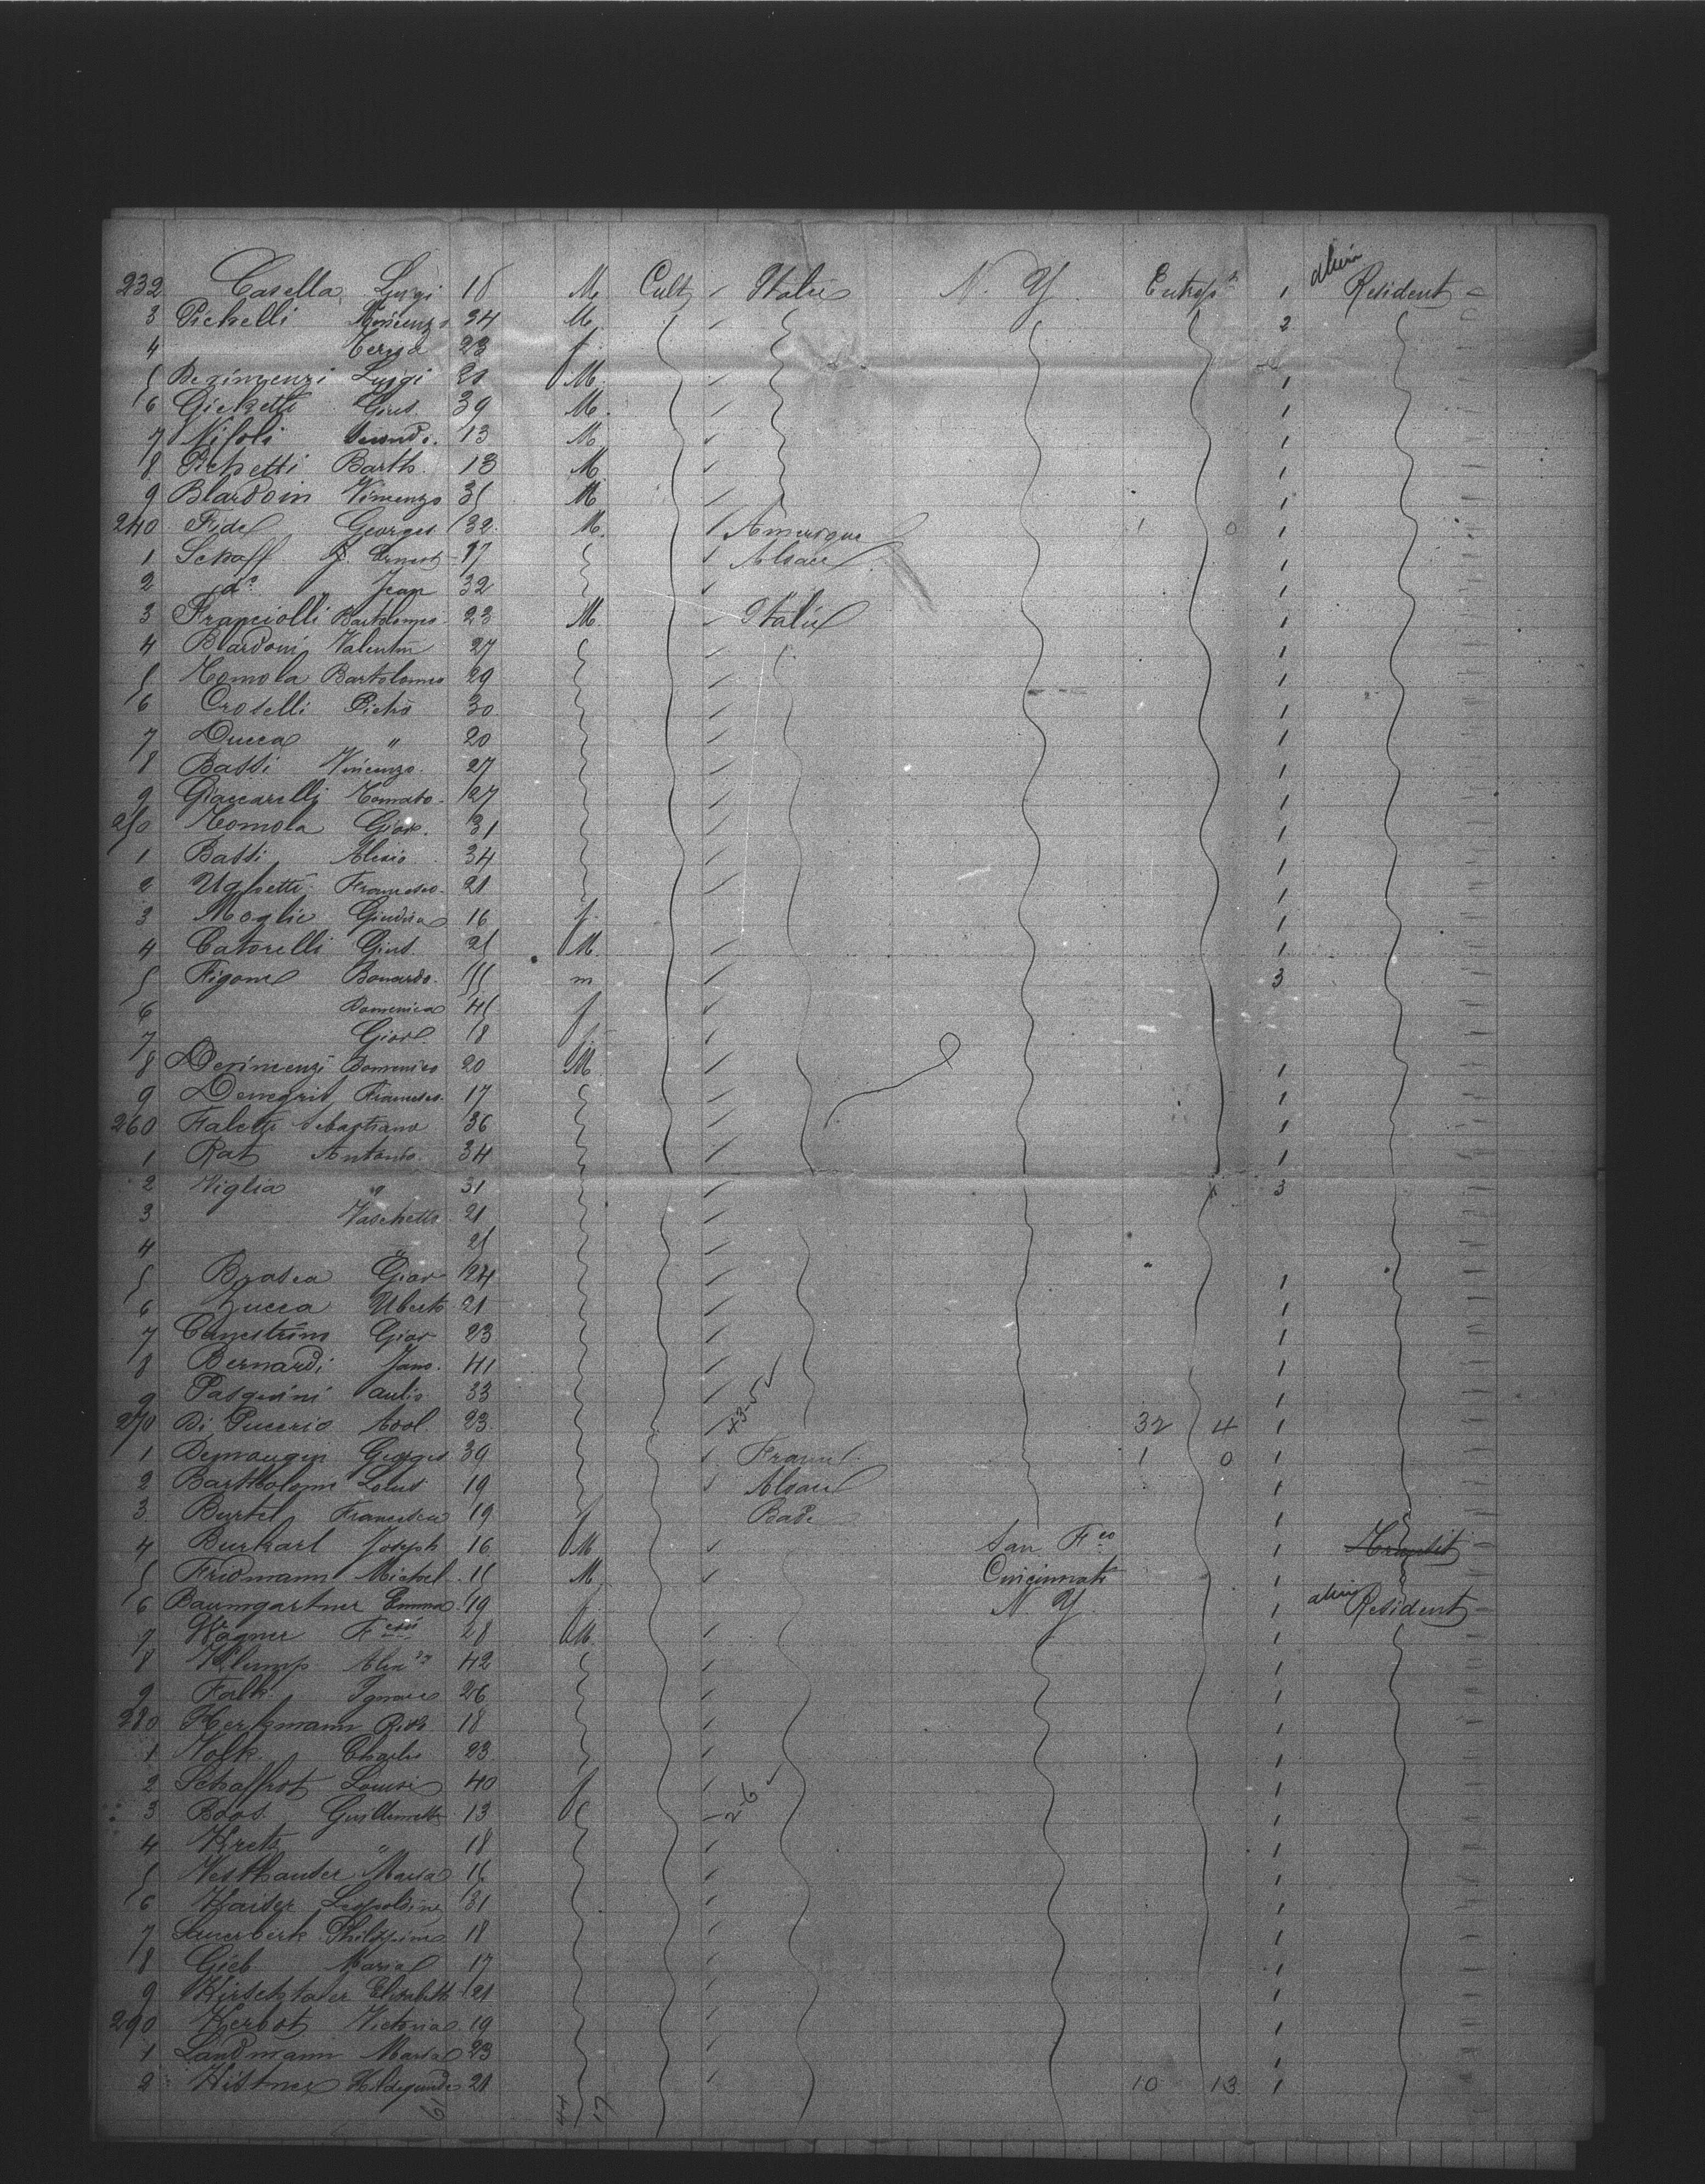 alien
232 Casella Luigi 16 M Cult Italie N. Y Entrep 1 Resident
3 Pichelli 34 M. 2
4 Teresa 23 f
5 Devincenzi Luigi 21 M. 1
6 Gichetti Gius. 39 M. 1
7 Nifoli Secondo. 13 M 1
8 Pichetti Barth. 13 M 1
9 Blardoin Vincenzo 35 M 1
240 Fidel Georges 32 M. Amerique 1 0 1
1 Schaff J. Ernest 17 Alsace 1
2 do Jean 32 1
3 Franciolli Bartolomeo 23 M. Italie 1
4 Blardoni Valentin 27 1
5 Tomola Bartolomeo 29 1
6 Croselli Pietro 30 1
7 Ducca " 20 1
8 Bassi Vincenzo. 27 1
9 Giaccarelli Tomato 27 1
250 Tomola Giov. 31 1
1 Bassi Alesio 34 1
2 Ughetti Francesco 21 1
3 Moglie Giudita 16 f. 1
4 Catorelli Gius. 25 M. 1
5 Rigone Bonardo. 55 m 3
6 Domenica 45 f
7 18 f
8 Devincenzi Domenico 20 M. 1
9 Denegrit Francesco. 17 1
260 Faletti Sebastiano 36 1
1 Rat Antonio. 34 1
2 Viglia " 31 3
3 Vaschetto 21
4 " 25
5 Brasca Giov 24 1
6 Zucca Uberto 21 1
7 Canestrini Giov 23 1
8 Bernardi 41 1
9 Pasquini Paulis 33 1
270 Di Puccrio Adol. 23. 43-5 32 4 1
1 Demaugen Georges 39 France 1 0 1
2 Bartholome Louis 19 Alsace 1
3 Burtel Francesca 19 f Bade 1
4 Burkart Joseph 16 M San Fco 1
5 Fridmann Michael. 15 M Cincinnati 1
6 Baumgartner Emma. 19 f N Y 1 alien Resident
7 Wagner 28 M. 1
8 Klump Alex 42 1
9 Falk Ignace 26
280 Herkmann Rich 18 1
1 Volk Charles 23. 1
2 Schaffrot Louise 40 f 1
3 Boos. Guillemette 13 2-6 1
4 Kretz " 18 1
5 Maria 15 1
6 Kaiser Leopoldine 31 1
7 Sauerbeck Philippine 18 1
8 Gieb Maria 17 1
9 Elisabeth 21 1
290 Kerbot Victoria. 19 1
1 Landmann Maria 23 1
2 Kistner Hildegunde 21 10 13 1
61 44 17